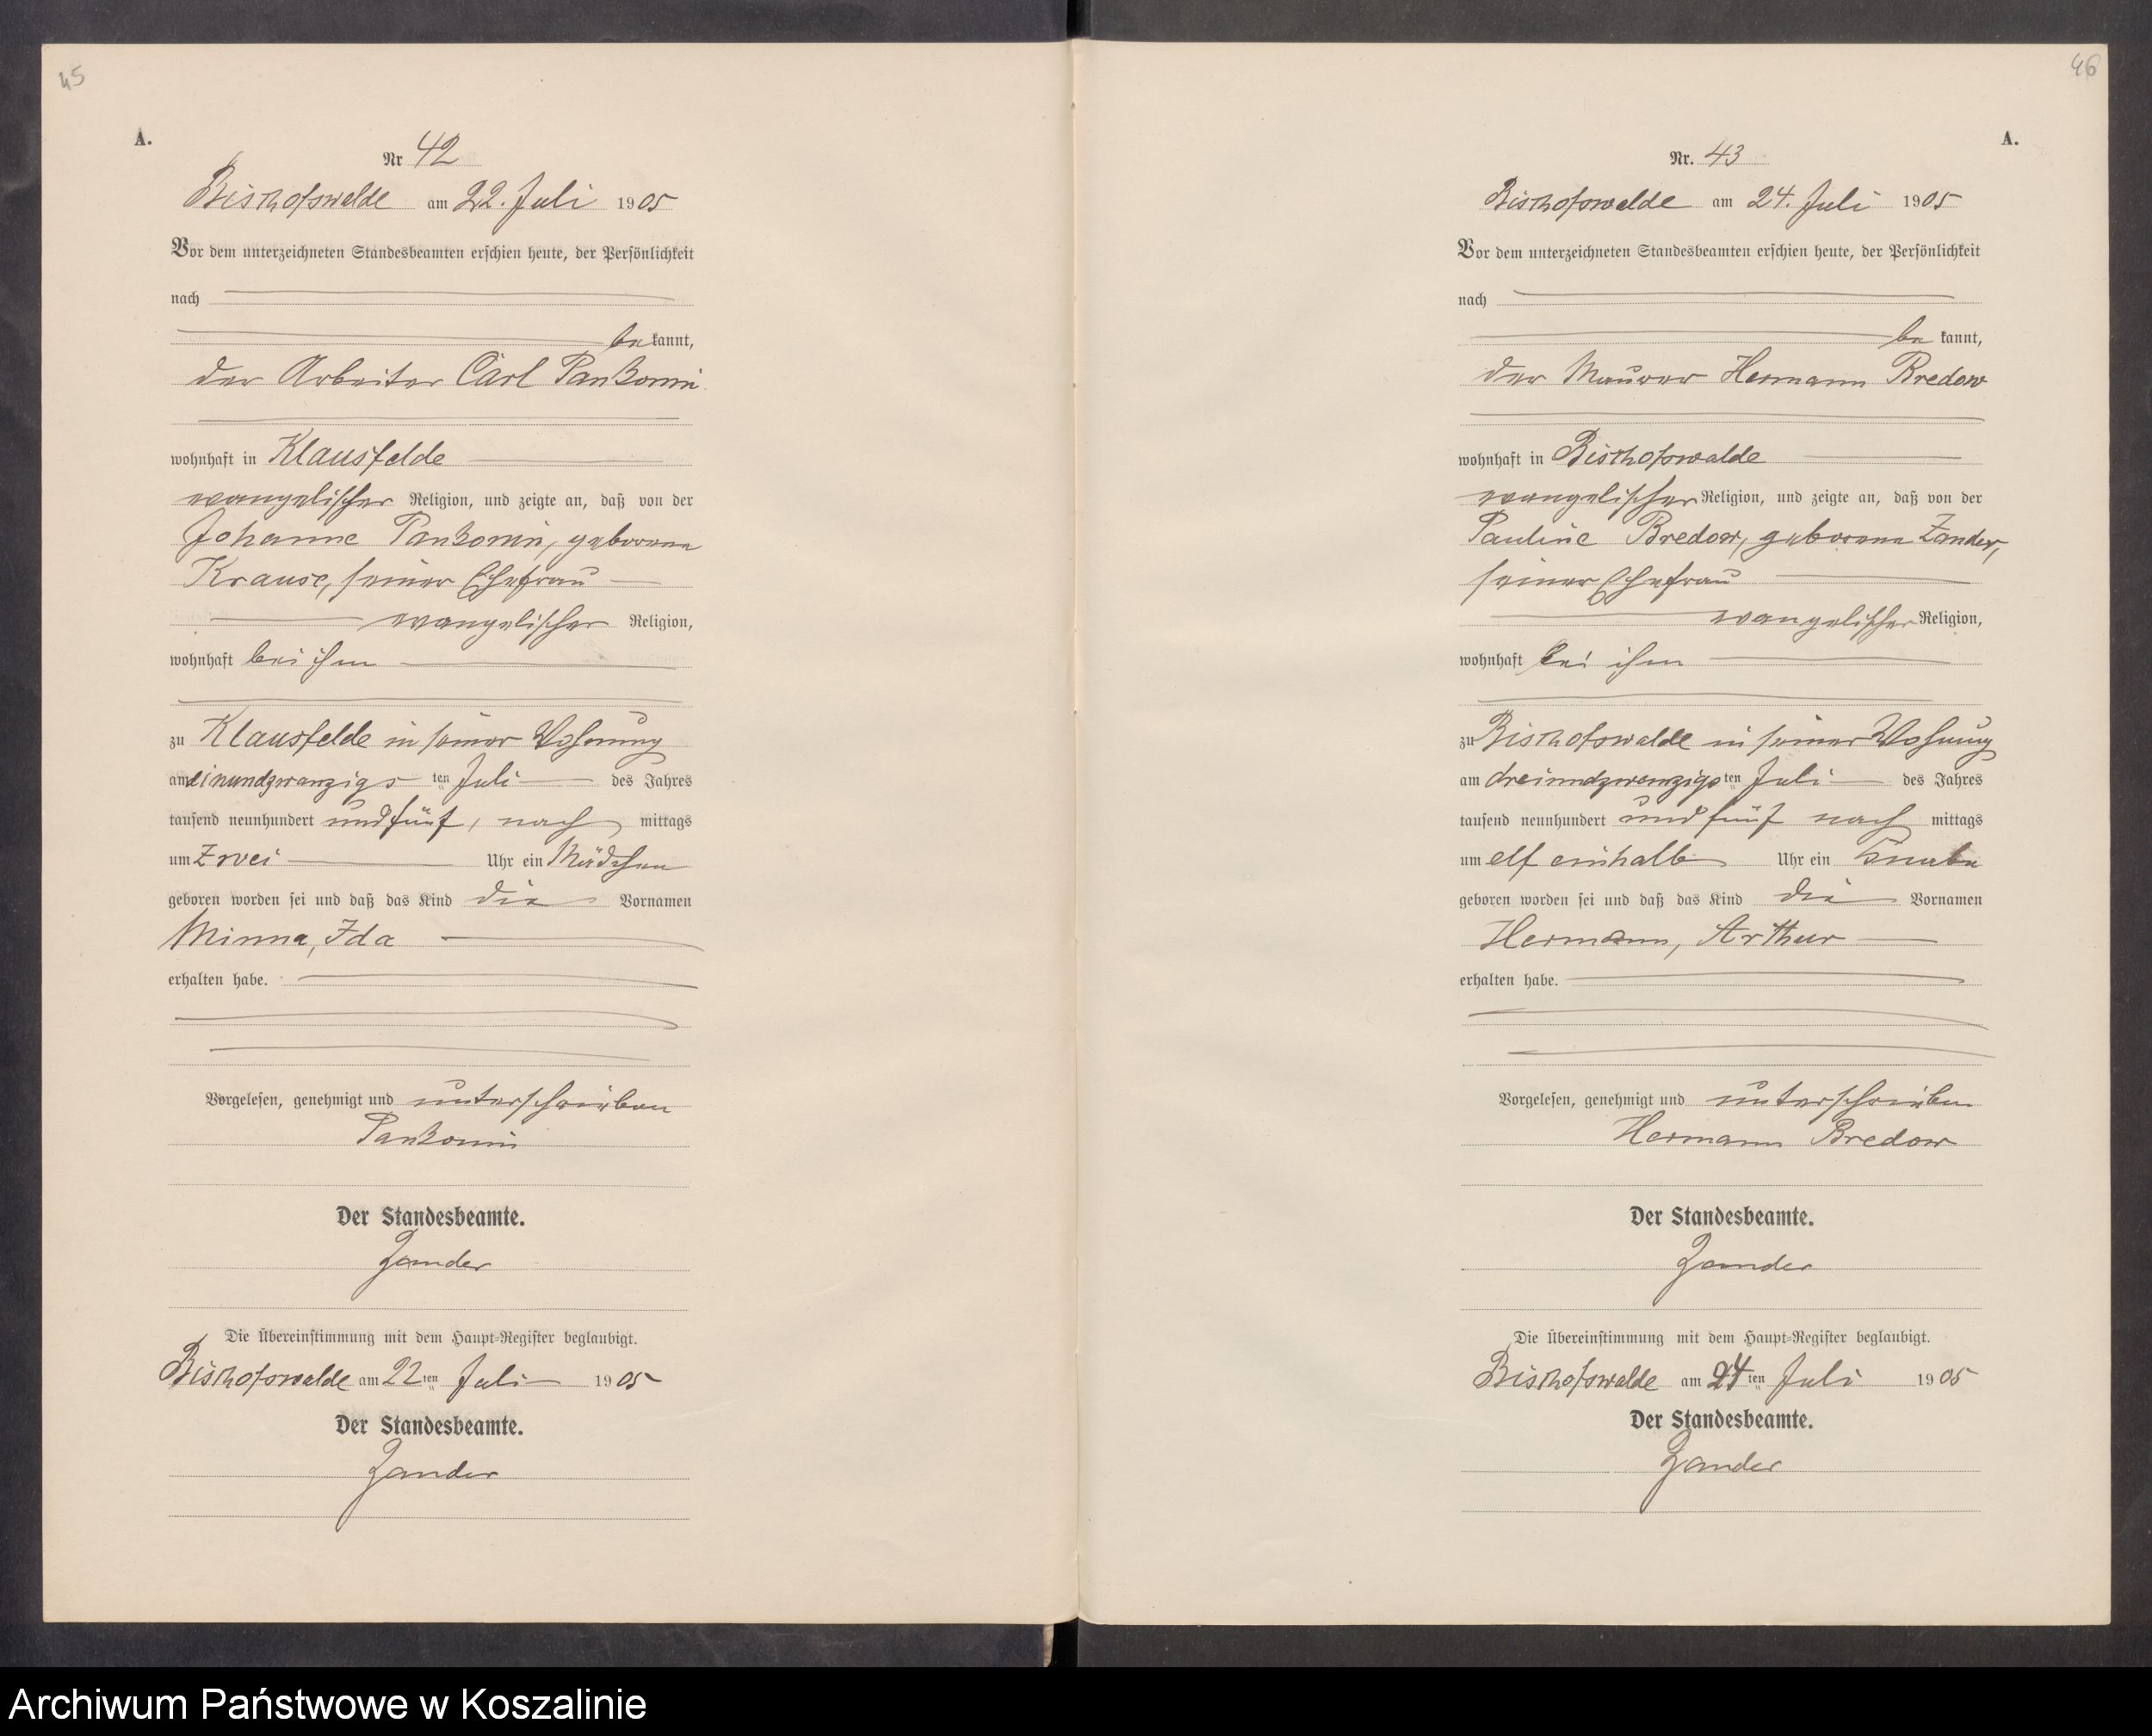 45
A.
Nr 42
Bischofswalde am 22. Juli 1905
Vor dem unterzeichneten Standesbeamten erschien heute, der Persönlichkeit
nach
be kannt,
der Arbeiter Carl Pankonin
wohnhaft in Klausfelde
evangelischer Religion, und zeigte an, daß von der
Johanne Pankonin, geborene
Krause, seiner Ehefrau
evangelischer Religion,
wohnhaft bei ihm
zu Klausfelde in seiner Wohnung
am einundzwanzigs ten Juli des Jahres
tausend neunhundert und fünf, nach mittags
um zwei Uhr ein Mädchen
geboren worden sei und daß das Kind die Vornamen
Minna, Ida
erhalten habe.
Vorgelesen, genehmigt und unterschrieben
Pankonin
Der Standesbeamte.
Zander
Die Übereinstimmung mit dem Haupt-Register beglaubigt.
Bischofswalde am 22 ten Juli 1905
Der Standesbeamte.
Zander
46
A.
Nr. 43
Bischofswalde am 24. Juli 1905
Vor dem unterzeichneten Standesbeamten erschien heute, der Persönlichkeit
nach
be kannt,
der Maurer Hermann Bredow
wohnhaft in Bischofswalde
evangelischer Religion, und zeigte an, daß von der
Pauline Bredow, geborene Zander,
seiner Ehefrau
evangelischer Religion,
wohnhaft bei ihm
zu Bischofswalde in seiner Wohnung
am dreiundzwanzigs ten Juli des Jahres
tausend neunhundert und fünf nach mittags
um elf einhalb Uhr ein Knabe
geboren worden sei und daß das Kind die Vornamen
Hermann, Arthur
erhalten habe.
Vorgelesen, genehmigt und unterschrieben
Hermann Bredow
Der Standesbeamte.
Zander
Die Übereinstimmung mit dem Haupt-Register beglaubigt.
Bischofswalde am 24 ten Juli 1905
Der Standesbeamte.
Zander
Archiwum Państwowe w Koszalinie